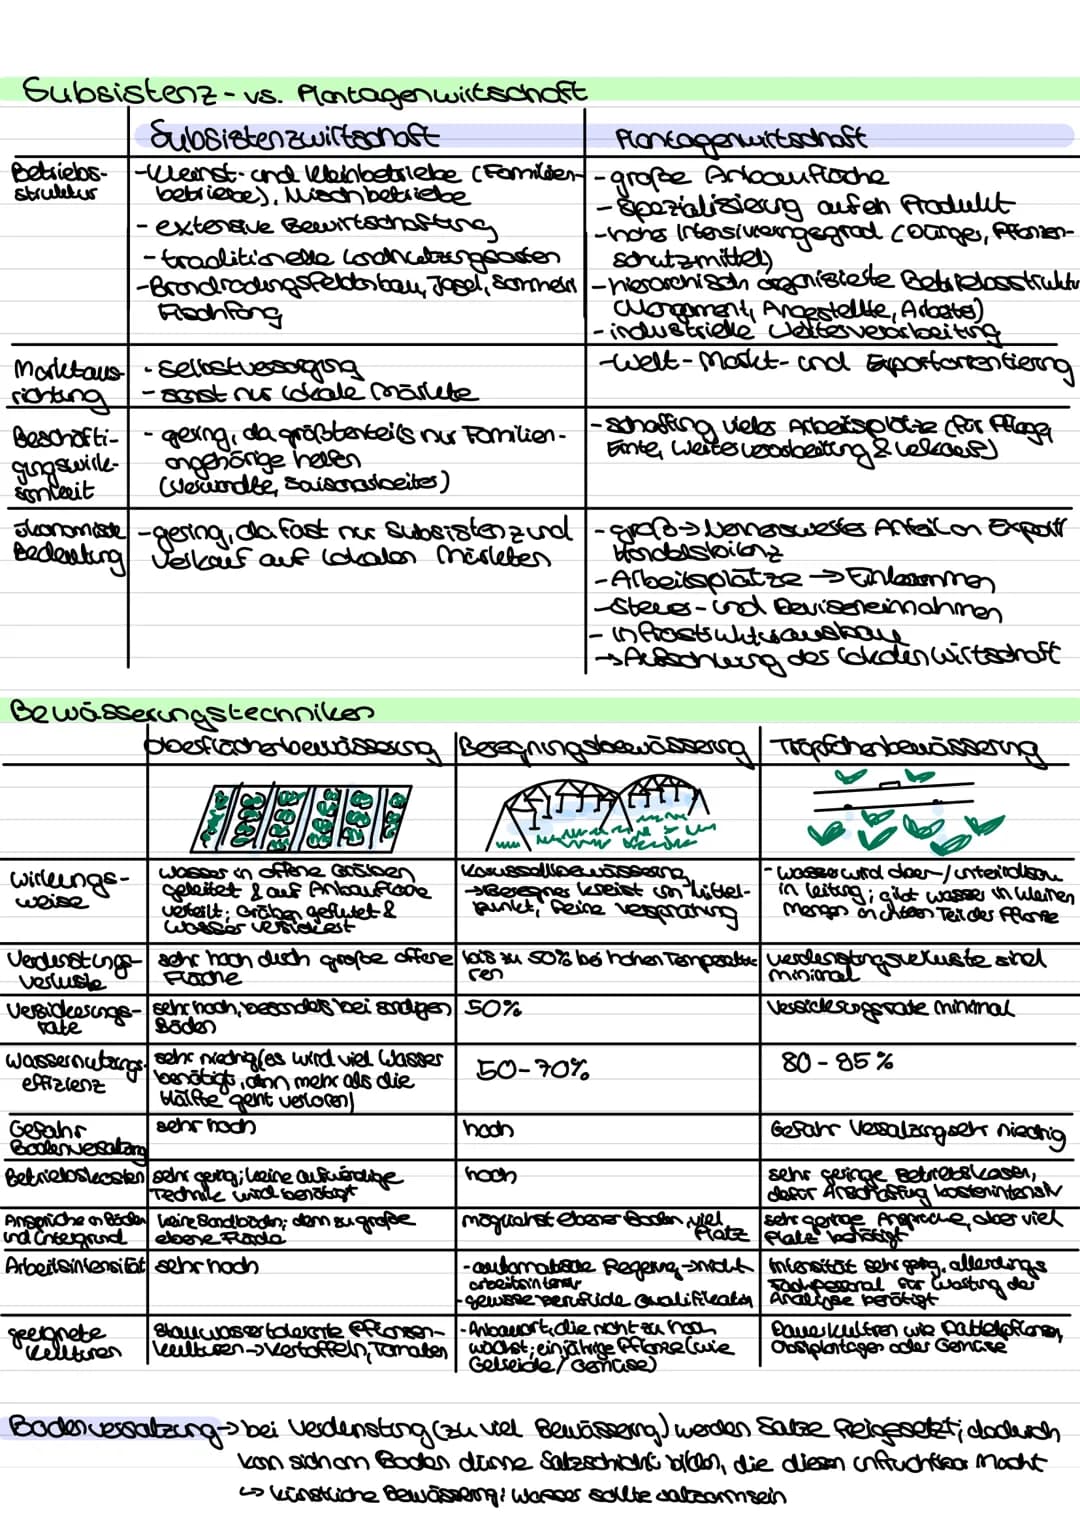 Subsistenz- vs. Plantagenwirtschaft
Subsistenzwirtschaft
Plantagenwirtschaft
Betriebs-
struktur
-Kleinst- und Kleinbetriebe (Familien-
betriebe), Mischbetriebe
- extensive Bewirtschaftung
- traditionelle Landnutzungsarten
-Brandrodungsfeldbau, Jagd, Sammeln
Fischfang
- große Anbaufläche
- Spezialisierung auf ein Produkt
- hoher Intensivierungsgrad (Dünger, Pflanzen-
schutzmittel)
- hierarchisch organisierte Betriebsstruktur
(Management, Angestellte, Arbeiter)
- industrielle Weiterverarbeitung
Marktaus-
richtung
- Selbstversorgung
- sonst nur lokale Märkte
-Welt-Markt- und Exportorientierung
Beschäfti-
gungswirk-
samkeit
- gering, da größtenteils nur Familien-
angehörige helfen
(Verwandte, Saisonarbeiter)
- Schaffung vieler Arbeitsplätze (für Pflege,
Ernte, Weiterverarbeitung & Verkauf)
ökonomische
Bedeutung
- gering, da fast nur Subsistenz und
Verkauf auf lokalen Märkten
- groß → Nennenswerter Anteil an Export
Handelsbilanz
- Arbeitsplätze → Einkommen
- Steuer- und Deviseneinnahmen
- Infrastrukturausbau
→ Aufschwung der lokalen Wirtschaft
Bewässerungstechniken
Oberflächenbewässerung
Beregnungsbewässerung
Tröpfchenbewässerung
Wirkungs-
weise
Wasser in offene Gräben
geleitet & auf Anbaufläche
verteilt; Gräben geflutet &
Wasser versickert
Karussellbewässerung
→ Beregner kreist um Mittel-
punkt, feine Versprühung
- Wasser wird ober-/unterirdisch
in Leitung; gibt Wasser in kleinen
Mengen an Teil der Pflanze
Verdunstungs-
verluste
sehr hoch durch große offene
Fläche
bis zu 50% bei hohen Temperatu-
ren
Verdunstungsverluste sind
minimal
Versickerungs-
rate
sehr hoch, besonders bei sandigen
Böden
50%
Versickerungsrate minimal
Wassernutzungs-
effizienz
sehr niedrig (es wird viel Wasser
benötigt, denn mehr als die
Hälfte geht verloren)
50-70%
80-95%
Gefahr
Bodenversalzung
sehr hoch
hoch
Gefahr Versalzung sehr niedrig
Betriebskosten
sehr gering; keine aufwändige
Technik wird benötigt
hoch
sehr geringe Betriebskosten,
dafür Anschaffung kostenintensiv
Ansprüche an Böden
und Untergrund
keine Sandböden; dann zu große
ebene Fläche
möglichst ebener Boden, viel
Platz
sehr geringe Ansprüche, aber viel
Platz benötigt
Arbeitsintensität
sehr hoch
- automatische Regelung → nicht
arbeitsintensiv
- gewisse berufliche Qualifikation
Intensität sehr gering, allerdings
Fachpersonal für Wartung der
Analyse benötigt
geeignete
Kulturen
Stauwassertolerante Pflanzen-
kulturen → Kartoffeln, Tomaten
- Anbauart, die nicht zu hoch
wächst; einjährige Pflanze (wie
Getreide/Gemüse)
Dauerkulturen wie Dattelpflanzen,
Obstplantagen oder Gemüse
Bodenversalzung → bei Verdunstung (zu viel Bewässerung) werden Salze freigesetzt; dadurch
kann sich am Boden dünne Salzschicht bilden, die diesen unfruchtbar macht
↳ künstliche Bewässerung: Wasser sollte salzarm sein